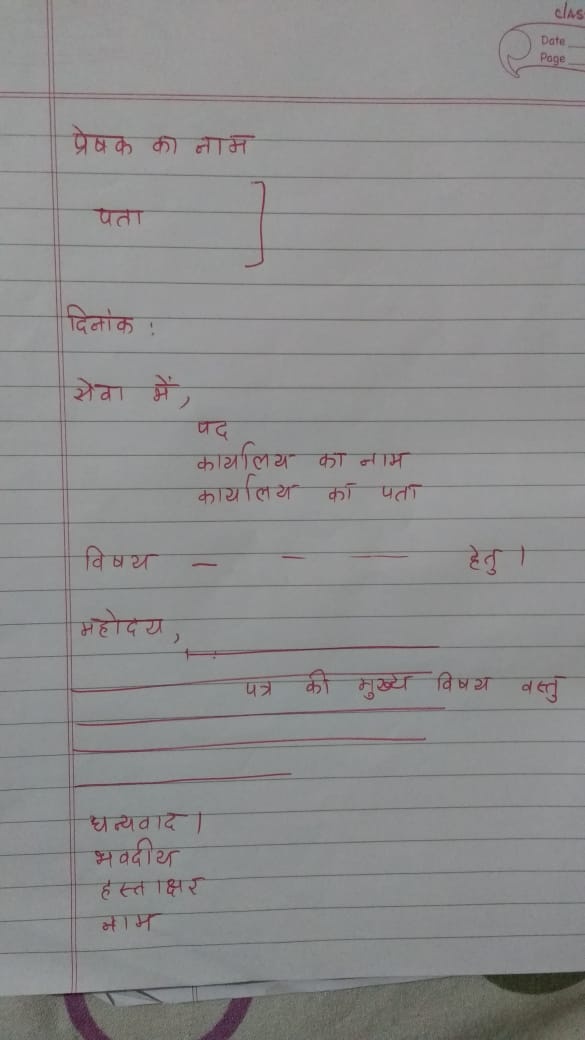 CLAS
Date
Page
प्रेषक का नाम
पता
दिनांक :
सेवा में,
पद
कार्यालय का नाम
कार्यालय का पता
विषय — — — हेतु ।
महोदय,
पत्र की मुख्य विषय वस्तु
धन्यवाद ।
भवदीय
हस्ताक्षर
नाम